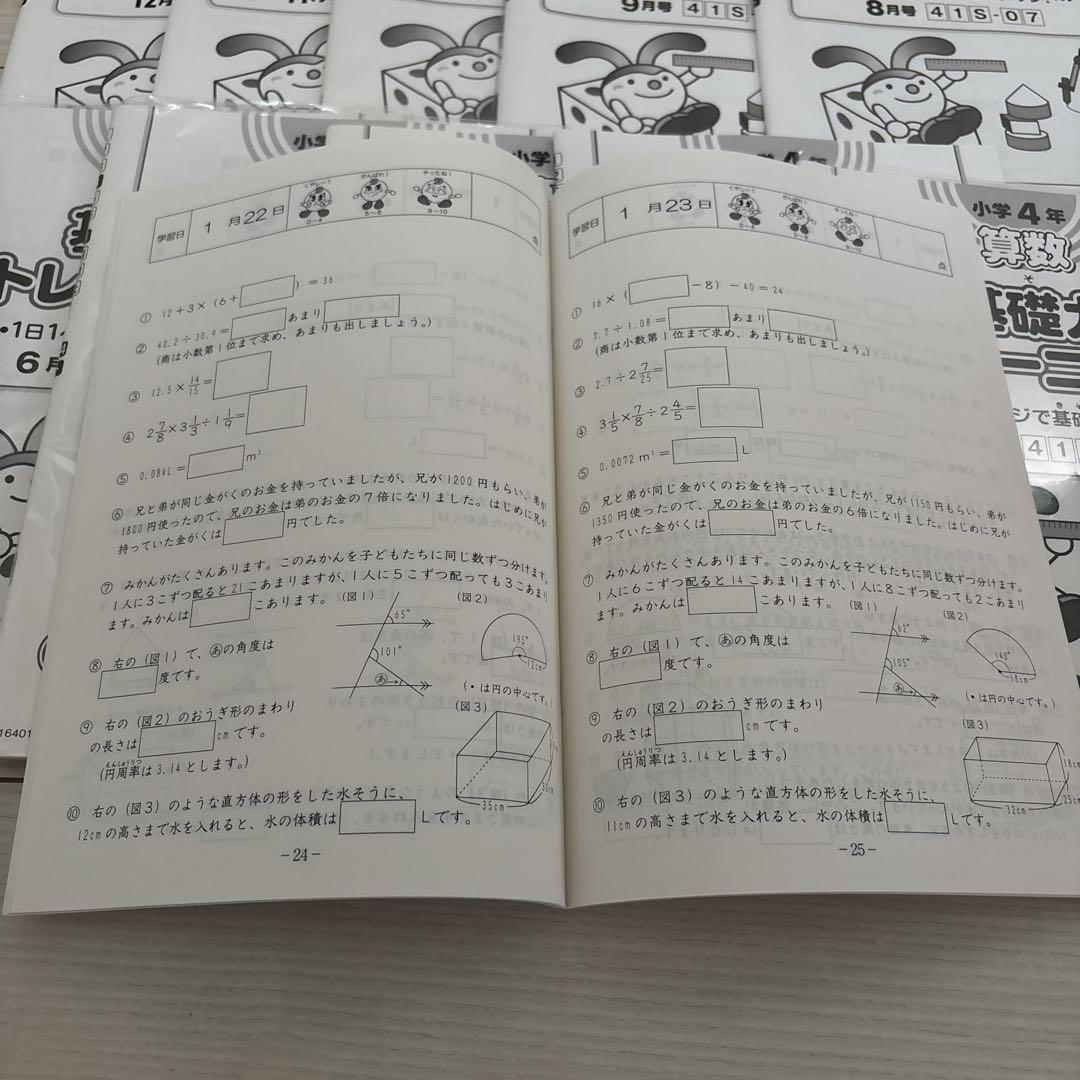 12月
11月
9月号 41S
8月号 41S-07
小学
小学
学4年
小学4年
算数
基礎力
トレ
ーニ
・1日1
6月
ジで基礎
41
1640
学習日 1月22日
くやしー! 0~4
がんばれ! 5~8
やったね! 9~10
点
① 12+3×(6+□)=36
② 40.2÷30.9=□あまり□
(商は小数第1位まで求め、あまりも出しましょう。)
③ 12.5×14/15=□
④ 2 7/8×3 1/3÷1 1/9=□
⑤ 0.08kL=□m³
⑥ 兄と弟が同じ金がくのお金を持っていましたが、兄が1200円もらい、弟が
1800円使ったので、兄のお金は弟のお金の7倍になりました。はじめに兄が
持っていた金がくは□円でした。
⑦ みかんがたくさんあります。このみかんを子どもたちに同じ数ずつ分けます。
1人に3こずつ配ると21こあまりますが、1人に5こずつ配っても3こあまり
ます。みかんは□こあります。
(図1)
65°
101°
あ
(図2)
195°
12cm
(・は円の中心です。)
⑧ 右の(図1)で、あの角度は
□度です。
⑨ 右の(図2)のおうぎ形のまわり
の長さは□cmです。
(円周率は3.14とします。)
えんしゅうりつ
(図3)
35cm
30cm
⑩ 右の(図3)のような直方体の形をした水そうに、
12cmの高さまで水を入れると、水の体積は□Lです。
-24-
学習日 1月23日
くやしー! 0~4
がんばれ! 5~8
やったね! 9~10
点
① 16×(□-8)-40=24
② 7.7÷1.08=□あまり□
(商は小数第1位まで求め、あまりも出しましょう。)
③ 2.7÷2 7/25=□
④ 3 1/5×7/8÷2 4/5=□
⑤ 0.0072m³=□L
⑥ 兄と弟が同じ金がくのお金を持っていましたが、兄が1150円もらい、弟が
1350円使ったので、兄のお金は弟のお金の6倍になりました。はじめに兄が
持っていた金がくは□円でした。
⑦ みかんがたくさんあります。このみかんを子どもたちに同じ数ずつ分けます。
1人に6こずつ配ると14こあまりますが、1人に8こずつ配っても2こあまり
ます。みかんは□こあります。
(図1)
62°
105°
あ
(図2)
140°
18cm
(・は円の中心です。)
⑧ 右の(図1)で、あの角度は
□度です。
⑨ 右の(図2)のおうぎ形のまわり
の長さは□cmです。
(円周率は3.14とします。)
えんしゅうりつ
(図3)
18cm
25cm
32cm
⑩ 右の(図3)のような直方体の形をした水そうに、
11cmの高さまで水を入れると、水の体積は□Lです。
-25-